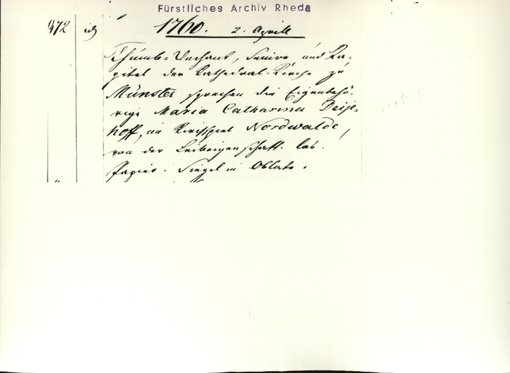 Fürstliches Archiv Rheda
472
1760. 2. Aprill
Thumb-Dechant, Senior und Ka-
pitel der Cathedral-Kirche zu
Münster sprechen die Eigenbehö-
rige Maria Catharina
hoff, im Kirchspiel Nordwalde,
von der Leibeigenschaft los.
Papier. Siegel in Oblate.